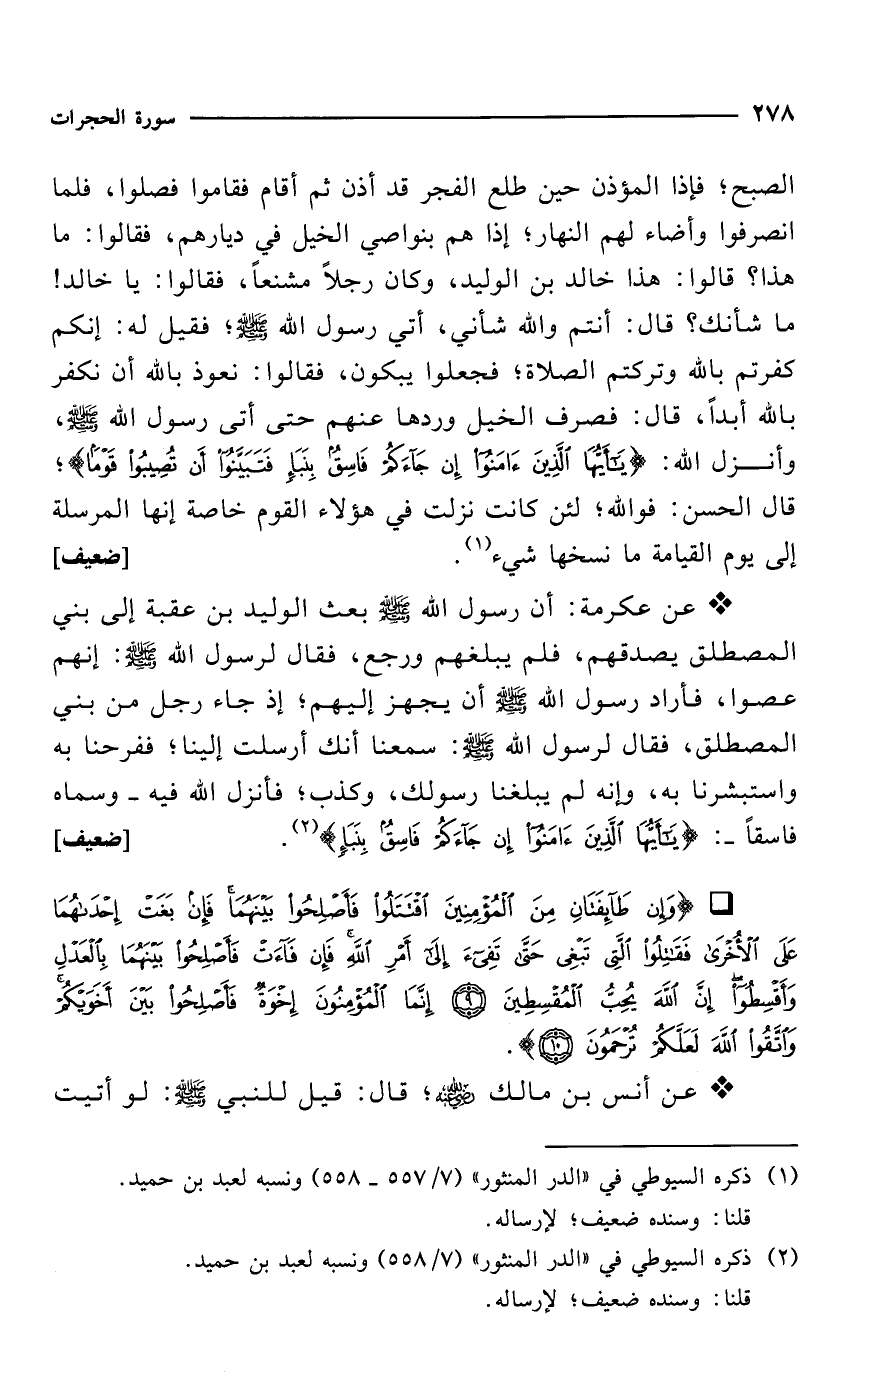 ٢٧٨ سورة الحجرات
الصبح؛ فإذا المؤذن حين طلع الفجر قد أذن ثم أقام فقاموا فصلوا، فلما
انصرفوا وأضاء لهم النهار؛ إذا هم بنواصي الخيل في ديارهم، فقالوا: ما
هذا؟ قالوا: هذا خالد بن الوليد، وكان رجلاً مشنعاً، فقالوا: يا خالد!
ما شأنك؟ قال: أنتم والله شأني، أتي رسول الله ﷺ؛ فقيل له: إنكم
كفرتم بالله وتركتم الصلاة؛ فجعلوا يبكون، فقالوا: نعوذ بالله أن نكفر
بالله أبداً، قال: فصرف الخيل وردها عنهم حتى أتى رسول الله ﷺ،
وأنـزل الله: ﴿يَـٰٓأَيُّهَا ٱلَّذِينَ ءَامَنُوٓا۟ إِن جَآءَكُمْ فَاسِقٌۢ بِنَبَإٍ فَتَبَيَّنُوٓا۟ أَن تُصِيبُوا۟ قَوْمًۢا﴾؛
قال الحسن: فوالله؛ لئن كانت نزلت في هؤلاء القوم خاصة إنها المرسلة
إلى يوم القيامة ما نسخها شيء(١). [ضعيف]
❖ عن عكرمة: أن رسول الله ﷺ بعث الوليد بن عقبة إلى بني
المصطلق يصدقهم، فلم يبلغهم ورجع، فقال لرسول الله ﷺ: إنهم
عصوا، فأراد رسول الله ﷺ أن يجهز إليهم؛ إذ جاء رجل من بني
المصطلق، فقال لرسول الله ﷺ: سمعنا أنك أرسلت إلينا؛ ففرحنا به
واستبشرنا به، وإنه لم يبلغنا رسولك، وكذب؛ فأنزل الله فيه ـ وسماه
فاسقاً ـ: ﴿يَـٰٓأَيُّهَا ٱلَّذِينَ ءَامَنُوٓا۟ إِن جَآءَكُمْ فَاسِقٌۢ بِنَبَإٍ﴾(٢). [ضعيف]
❑ ﴿وَإِن طَآئِفَتَانِ مِنَ ٱلْمُؤْمِنِينَ ٱقْتَتَلُوا۟ فَأَصْلِحُوا۟ بَيْنَهُمَا ۖ فَإِنۢ بَغَتْ إِحْدَىٰهُمَا
عَلَى ٱلْأُخْرَىٰ فَقَـٰتِلُوا۟ ٱلَّتِى تَبْغِى حَتَّىٰ تَفِىٓءَ إِلَىٰٓ أَمْرِ ٱللَّهِ ۚ فَإِن فَآءَتْ فَأَصْلِحُوا۟ بَيْنَهُمَا بِٱلْعَدْلِ
وَأَقْسِطُوٓا۟ ۖ إِنَّ ٱللَّهَ يُحِبُّ ٱلْمُقْسِطِينَ ٩ إِنَّمَا ٱلْمُؤْمِنُونَ إِخْوَةٌ فَأَصْلِحُوا۟ بَيْنَ أَخَوَيْكُمْ ۚ
وَٱتَّقُوا۟ ٱللَّهَ لَعَلَّكُمْ تُرْحَمُونَ ١٠﴾.
❖ عن أنس بن مالك رضي الله عنه؛ قال: قيل للنبي ﷺ: لو أتيت
(١) ذكره السيوطي في «الدر المنثور» (٧/ ٥٥٧ ـ ٥٥٨) ونسبه لعبد بن حميد.
قلنا: وسنده ضعيف؛ لإرساله.
(٢) ذكره السيوطي في «الدر المنثور» (٧/ ٥٥٨) ونسبه لعبد بن حميد.
قلنا: وسنده ضعيف؛ لإرساله.